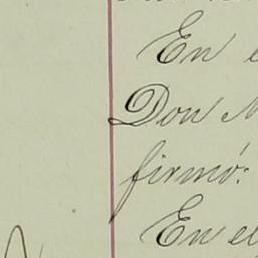 En
Don
firmó:
En el